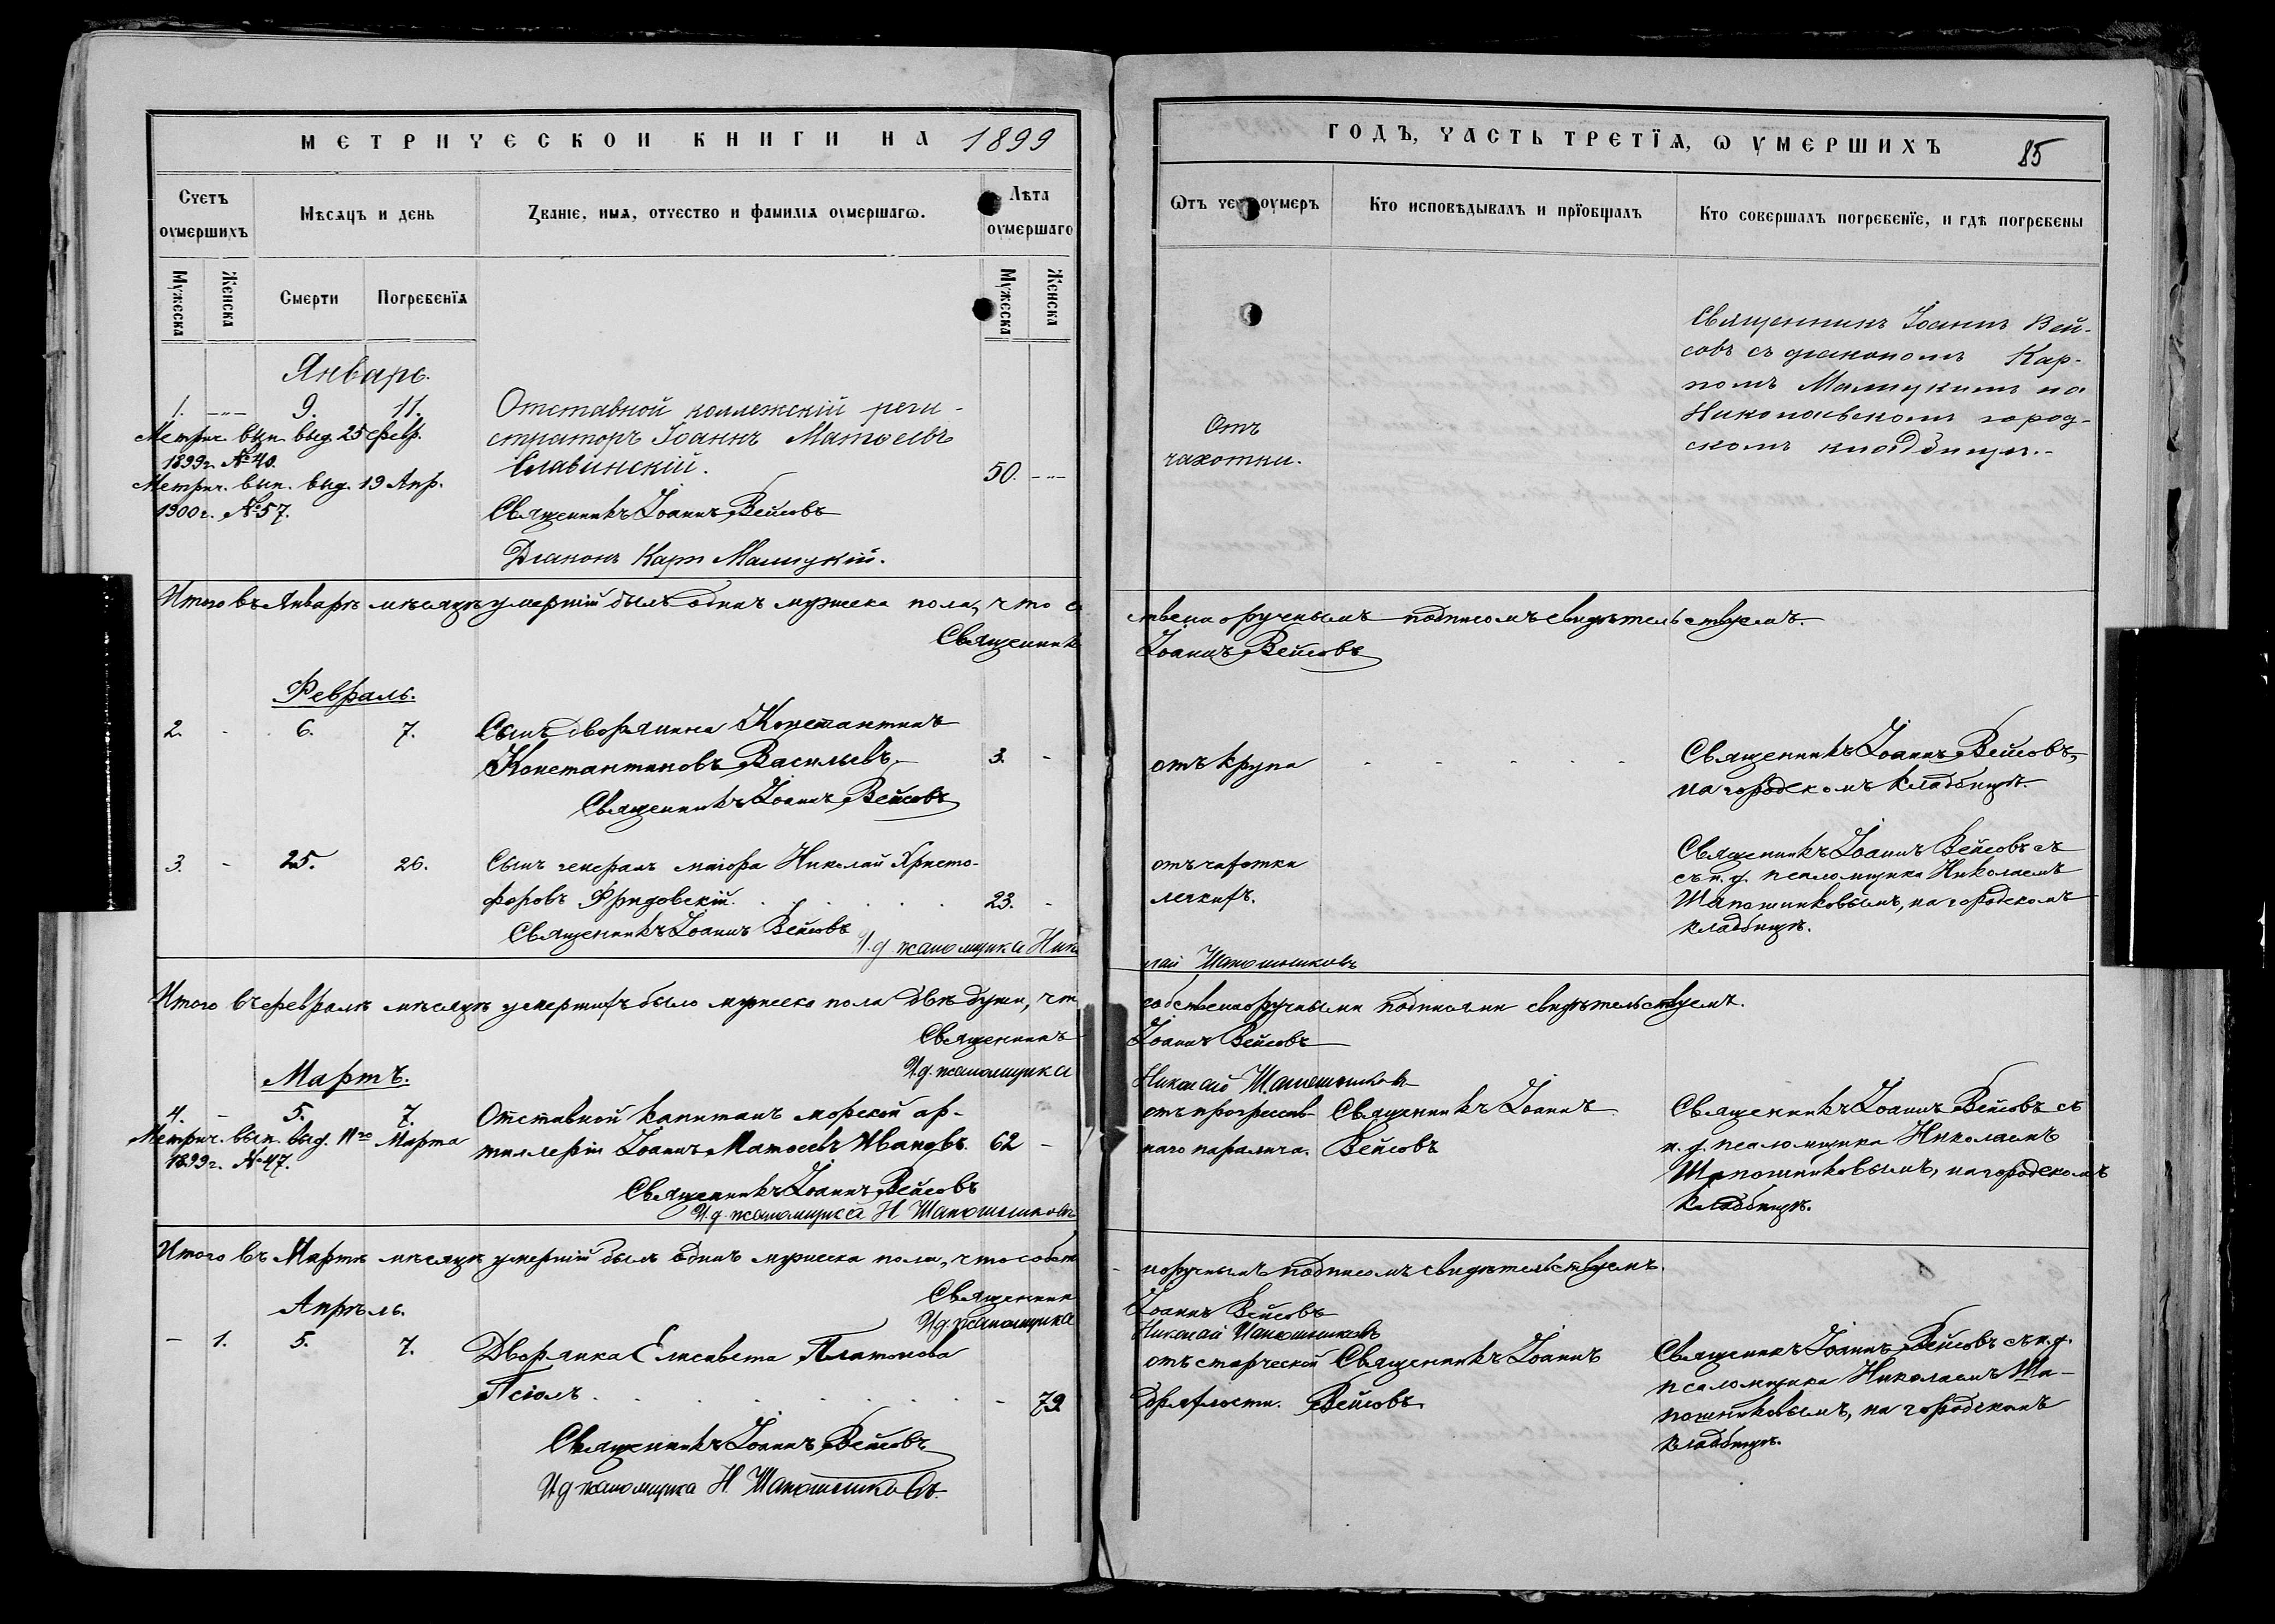 МЕТРИЧЕСКОИ КНИГИ НА 1899
ГОДЪ, ЧАСТЬ ТРЕТІЯ, Ѡ ѸМЕРШИХЪ 85
Счетъ оумершихъ
Мѣсяцъ и день
Званіе, имя, отчество и фамилія оумершагѡ.
Лѣта оумершаго
Ѿтъ чего оумеръ
Кто исповѣдывалъ и пріобщалъ
Кто совершалъ погребеніе, и гдѣ погребены
Мужеска
Женска
Смерти
Погребенія
Мужеска
Женска
Январь.
1. -„- 9. 11.
Метрич. вып. выд. 25 февр.
1899г. №40.
Метрич. вып. выд. 19 Апр.
1900г. №57.
Отставной коллежскій реги-
страторъ Іоаннъ Матѳеевъ
Славинскій.
50. -„-
Священникъ Іоаннъ Вейсовъ
Діаконъ Карпъ Малицкій.
Отъ
чахотки.
Священникъ Іоаннъ Вей-
совъ съ діакономъ Кар-
помъ Малицкимъ на
Николаевскомъ город-
скомъ кладбищѣ.-
Итого въ Январѣ мѣсяцѣ умершій былъ одинъ мужеска пола, что со
ственноручнымъ подписомъ свидѣтельствуемъ.
Священникъ
Іоаннъ Вейсовъ
Февраль.
2. - 6. 7.
Сынъ дворянина Константинъ
Константиновъ Васильевъ,
3. -
Священникъ Іоаннъ Вейсовъ
отъ крупа
Священникъ Іоаннъ Вейсовъ,
на городскомъ кладбищѣ.
3. - 25. 26.
Сынъ генералъ маіора Николай Христо-
форовъ Фридовскій.
23. -
Священникъ Іоаннъ Вейсовъ
И.д. псаломщика Нико
лай Шапошниковъ
отъ чахотки
легкихъ.
Священникъ Іоаннъ Вейсовъ съ
съ и. д. псаломщика Николаемъ
Шапошниковымъ, на городскомъ
кладбищѣ.
Итого въ февралѣ мѣсяцѣ умершихъ было мужеска пола двѣ души, что
собственноручными подписями свидѣтельствуемъ.
Священникъ
Іоаннъ Вейсовъ
И.д. псаломщика
Николай Шапошниковъ
Мартъ.
4. - 5. 7.
Метрич. вып. выд. 11го Марта
1899г. №47.
Отставной капитанъ морской ар-
тиллеріи Іоаннъ Матѳеевъ Ивановъ.
62 -
Священникъ Іоаннъ Вейсовъ
И.д. псаломщика Н. Шапошниковъ
отъ прогрессив-
наго паралича.
Священникъ Іоаннъ
Вейсовъ
Священникъ Іоаннъ Вейсовъ съ
и. д. псаломщика Николаемъ
Шапошниковымъ, на городскомъ
кладбищѣ.
Итого въ Мартѣ мѣсяцѣ умершій былъ одинъ мужеска пола, что собств
норучнымъ подписомъ свидѣтельствуемъ.
Священник
Іоаннъ Вейсовъ
И.д. псаломщика
Николай Шапошниковъ
Апрѣль.
- 1. 5. 7.
Дворянка Елисавета Платонова
Псіолъ
- 79
Священникъ Іоаннъ Вейсовъ
И.д псаломщика Н. Шапошниковъ.
отъ старческой
дряхлости.
Священникъ Іоаннъ
Вейсовъ.
Священникъ Іоаннъ Вейсовъ съ и.д.
псаломщика Николаемъ Ша-
пошниковымъ, на городскомъ
кладбищѣ.